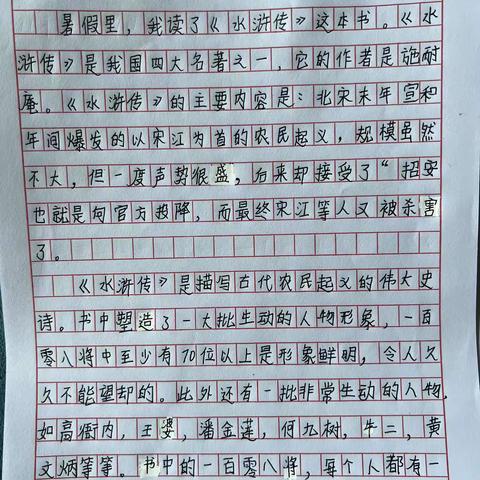 暑假里，我读了《水浒传》这本书。《水
浒传》是我国四大名著之一，它的作者是施耐
庵。《水浒传》的主要内容是：北宋末年宣和
年间爆发的以宋江为首的农民起义，规模虽然
不大，但一度声势很盛，后来却接受了“招安
也就是向官方投降，而最终宋江等人又被杀害
了。
《水浒传》是描写古代农民起义的伟大史
诗。书中塑造了一大批生动的人物形象，一百
零八将中至少有70位以上是形象鲜明，令人久
久不能望却的。此外还有一批非常生动的人物，
如高衙内，王婆，潘金莲，何九树，牛二，黄
文炳等等。书中的一百零八将，每个人都有一